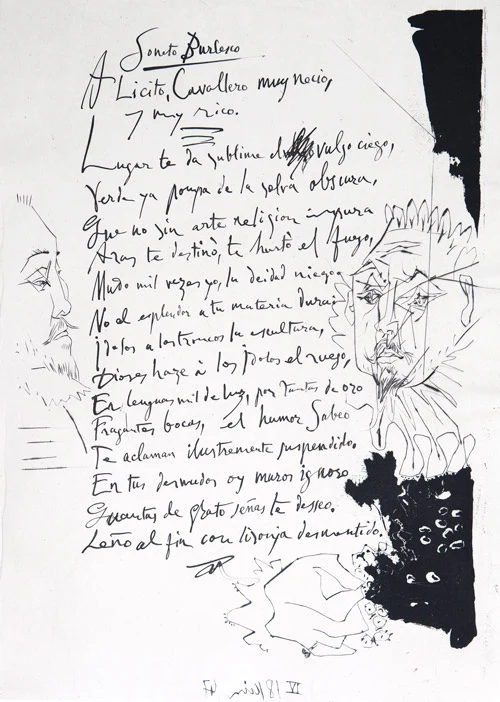 Soneto Burlesco
A Licito, Cavallero muy necio,
y my rico.
Lugar te da sublime el vulgo ciego,
Verde ya pompa de la selva obscura,
Que no sin arte religion impura
Aras te destinò, te hurtò el fuego,
Mudo mil vezes yo, la deidad niego
No el esplendor a tu materia dura:
jdolos a los troncos la escultura,
Dioses haze à los jdolos el ruego,
En lenguas mil de luz, por tantas de oro
Fragantes bocas, el humor Sabeo
Te aclaman ilustremente suspendido.
En tus desnudos oy muros ignoro
Quantas de grato señas te desseo.
Leño al fin con lisonja desmentido.
IV 18 47